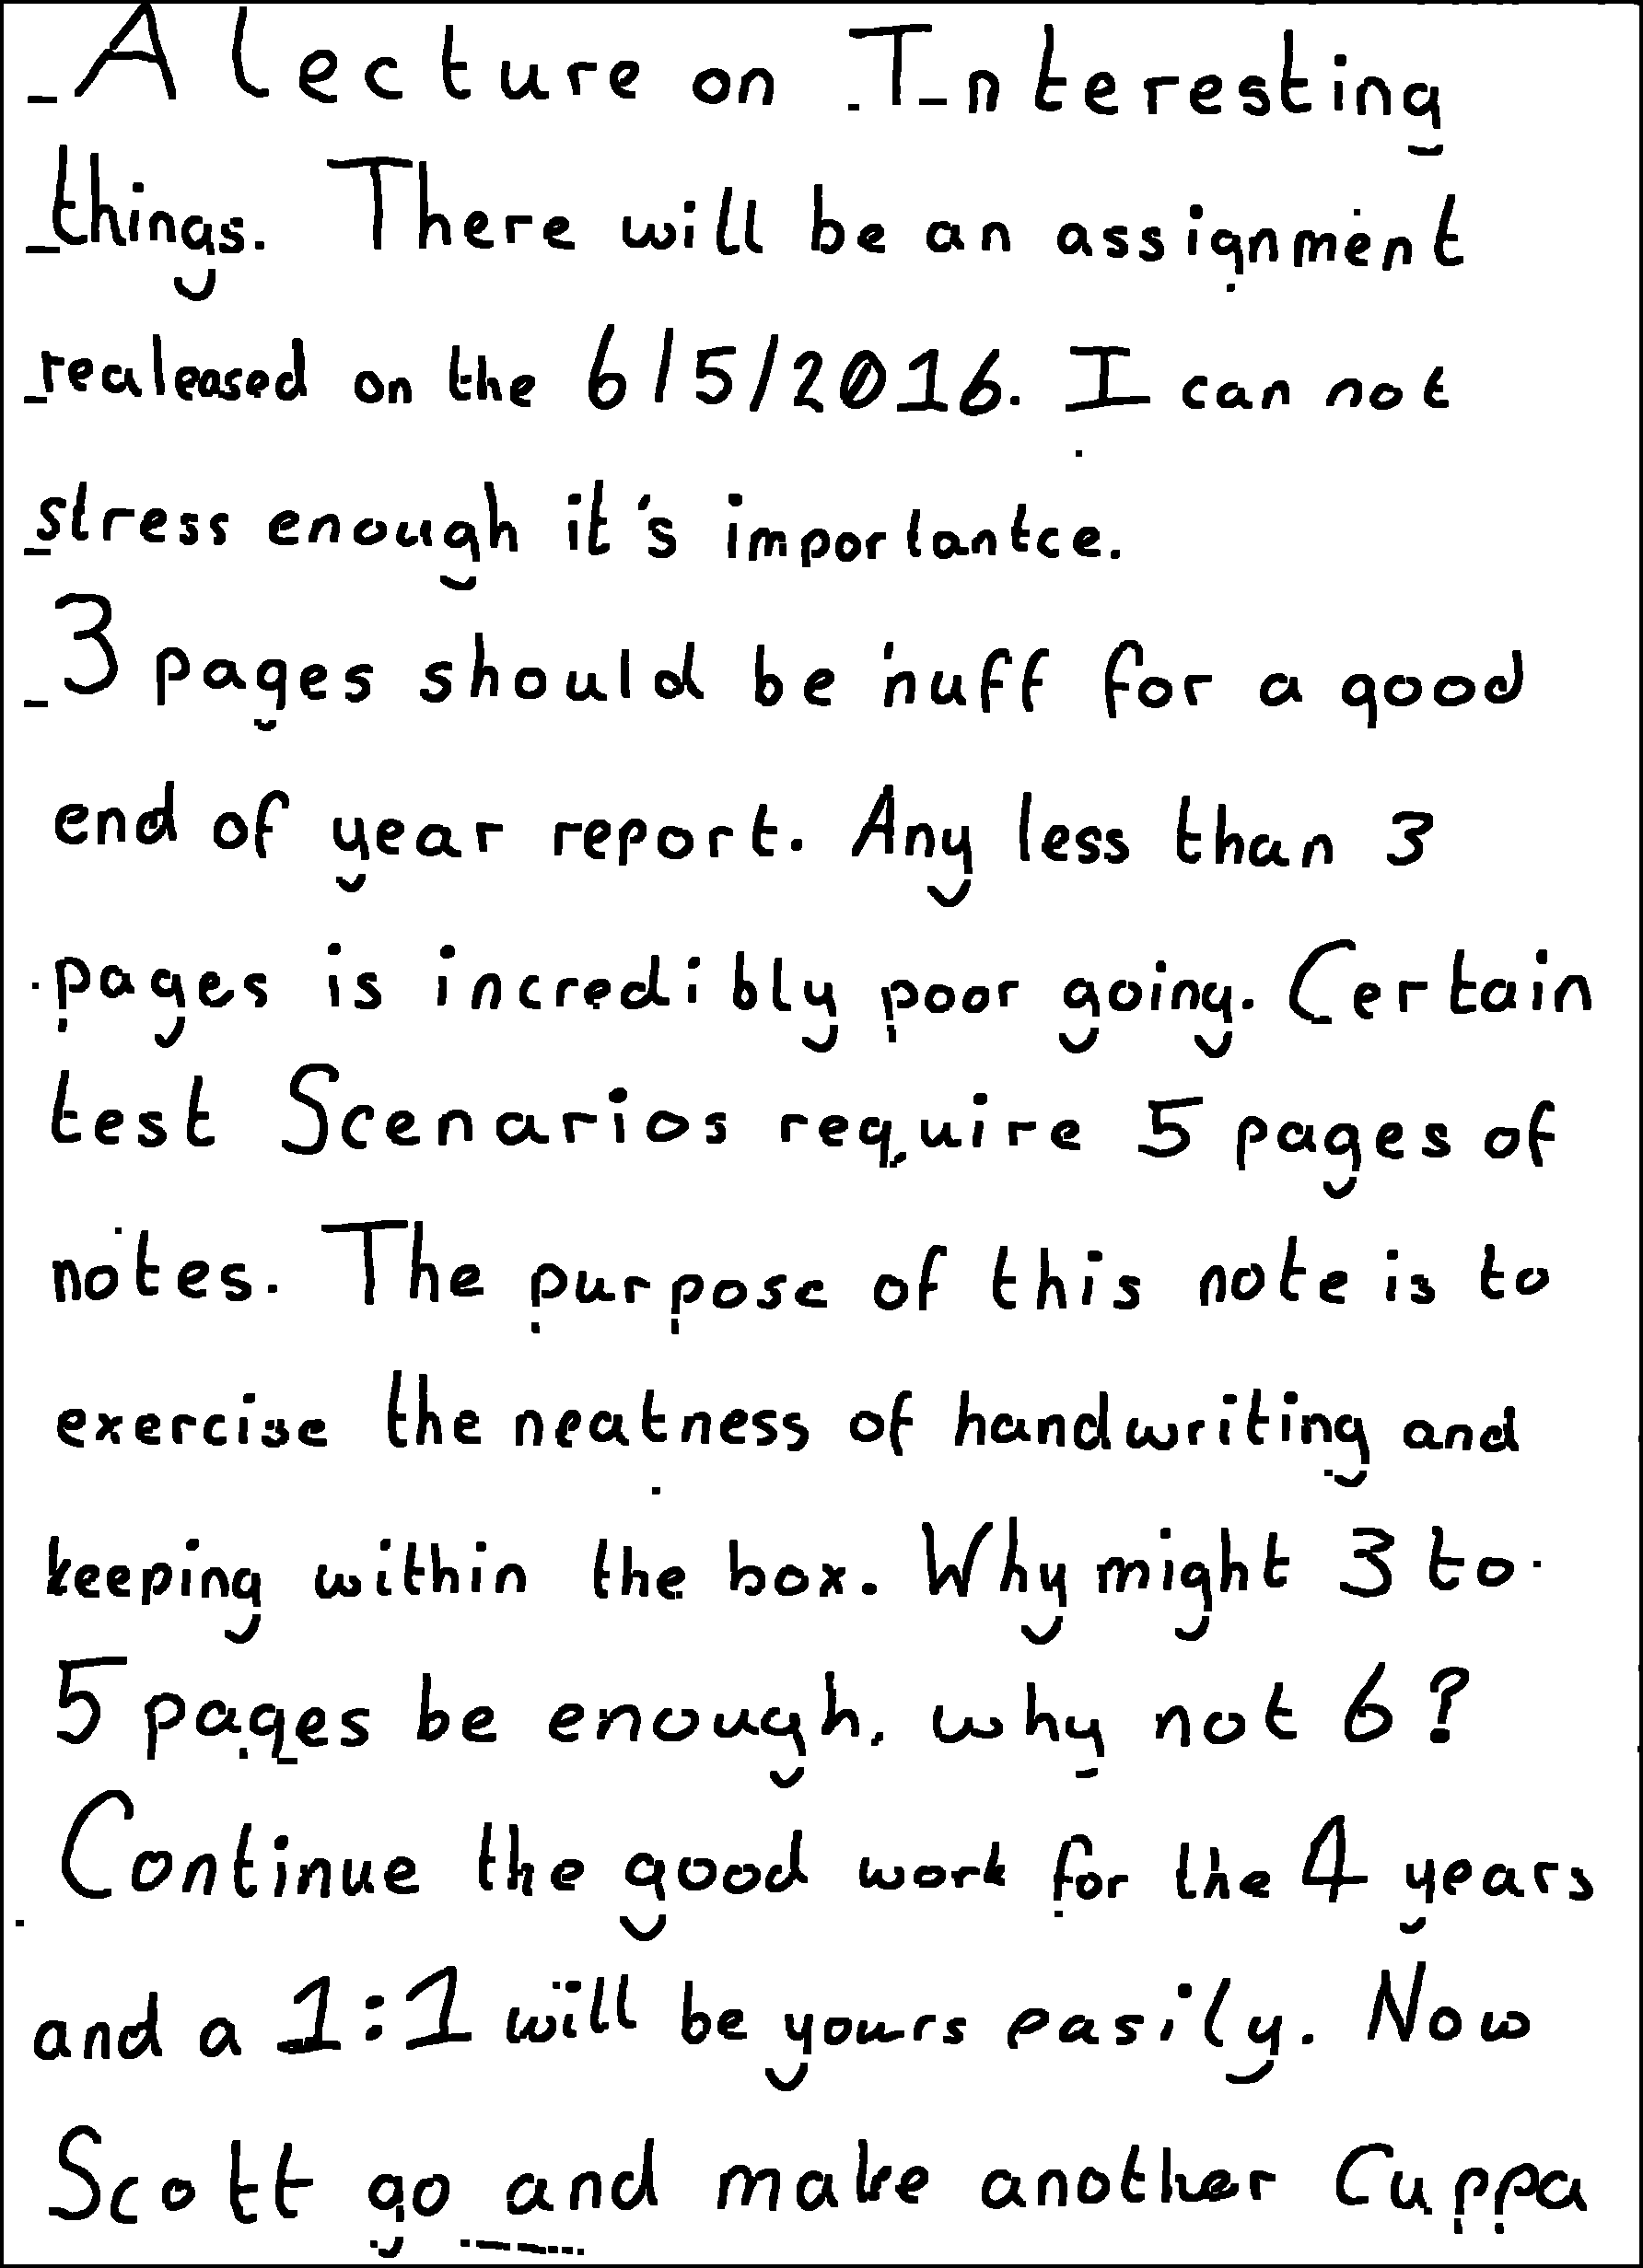 A lecture on Interesting
things. There will be an assignment
realeased on the 6/5/2016. I can not
stress enough it's importantce.
3 pages should be 'nuff for a good
end of year report. Any less than 3
pages is incredibly poor going. Certain
test Scenarios require 5 pages of
notes. The purpose of this note is to
exercise the neatness of handwriting and
keeping within the box. Why might 3 to
5 pages be enough, why not 6?
Continue the good work for the 4 years
and a 1:1 will be yours easily. Now
Scott go and make another Cuppa